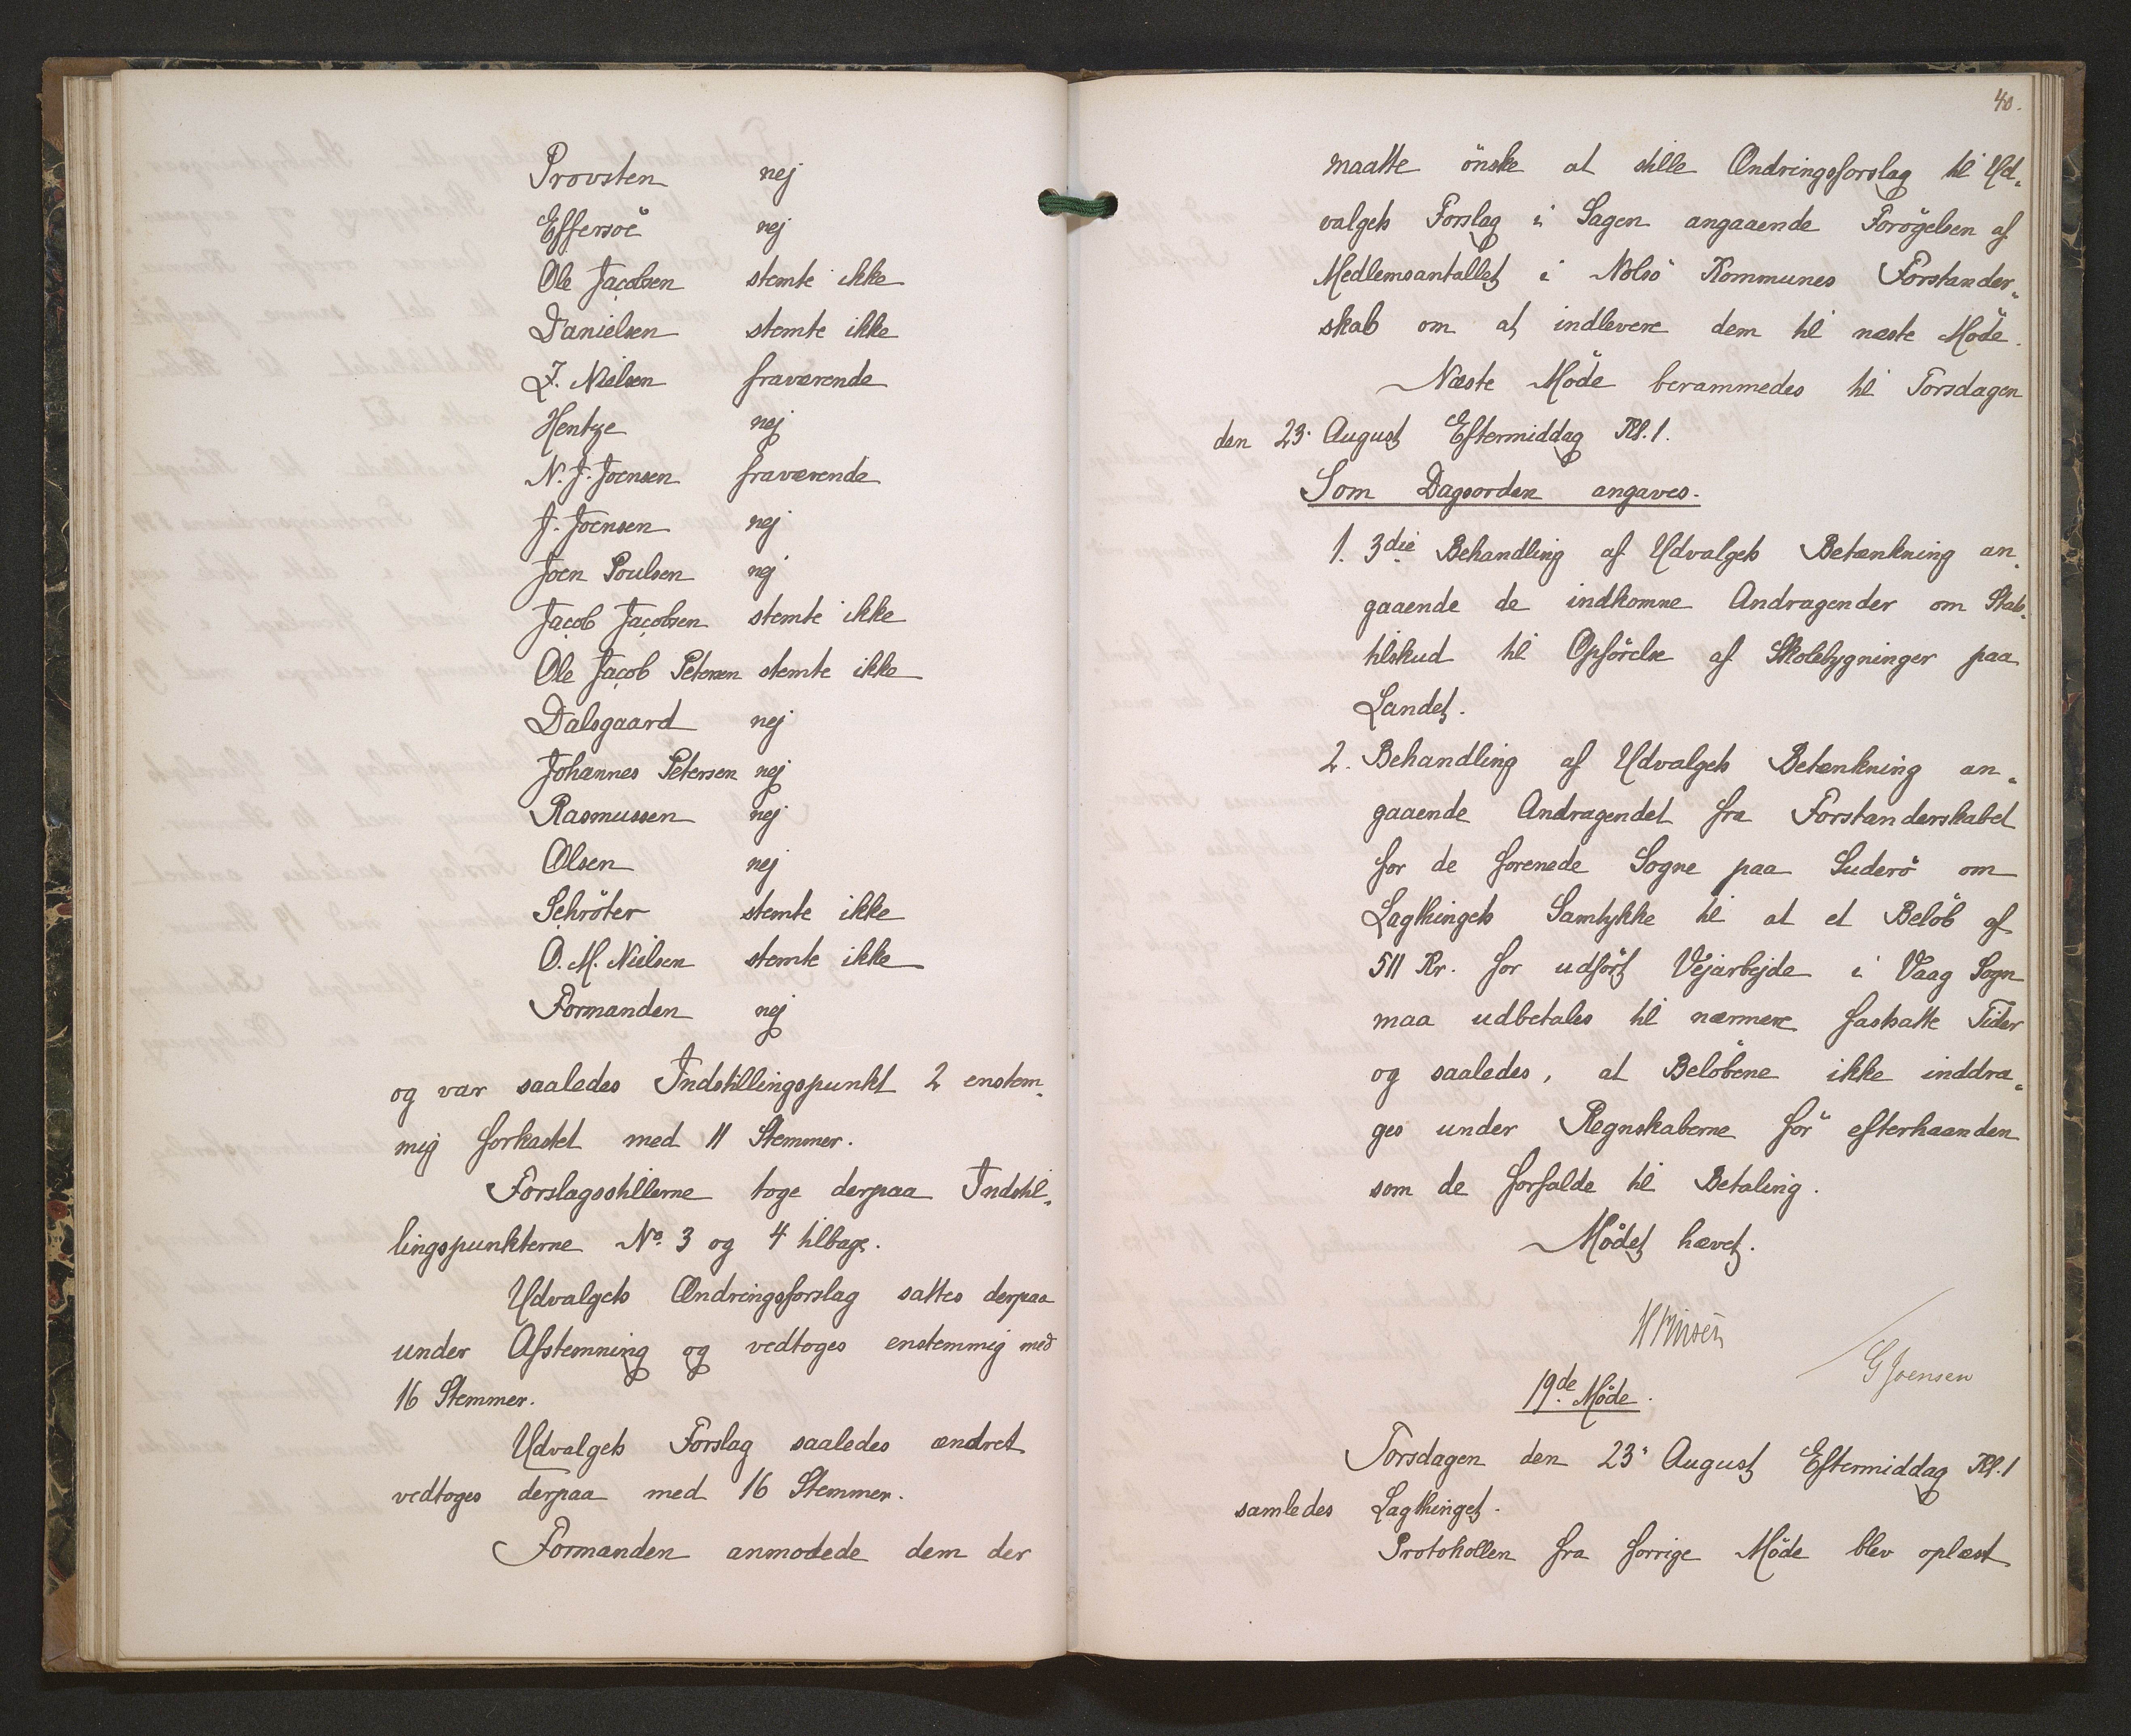 Provsten nej
Effersöe nej
Ole Jacobsen stemte ikke
Danielsen stemte ikke
J. Nielsen fraværende
Hentze nej
N. J. Joensen fraværende
J. Joensen nej
Joen Poulsen nej
Jacob Jacobsen stemte ikke
Ole Jacob Petersen stemte ikke
Dalsgaard nej
Johannes Petersen nej
Rasmussen nej
Olsen nej
Schröter stemte ikke
O. M. Nielsen stemte ikke
Formanden nej
og var saaledes Indstillingspunkt 2 enstem-
mig forkastet med 11 Stemmer.
Forslagsstillerne toge derpaa Indstil-
lingspunkterne No. 3 og 4 tilbage.
Udvalgets Ændringsforslag sattes derpaa
under Afstemning og vedtoges enstemmig med
16 Stemmer.
Udvalgets Forslag saaledes ændret
vedtoges derpaa med 16 Stemmer.
Formanden anmodede dem der
40.
maatte önske at stille Ændringsforslag til Ud-
valgets Forslag i Sagen angaaende Forögelsen af
Medlemsantallet i Nolsö Kommunes Forstander-
skab om at indlevere dem til næste Möde.
Næste Möde berammedes til Torsdagen
den 23' August Eftermiddag Kl. 1.
Som Dagsorden angaves.
1. 3die Behandling af Udvalgets Betænkning an-
gaaende de indkomne Andragender om Stats-
tilskud til Opförelse af Skolebygninger paa
Landet.
2. Behandling af Udvalgets Betænkning an-
gaaende Andragendet fra Forstanderskabet
for de forenede Sogne paa Suderö om
Lagthingets Samtykke til at et Belöb af
511 Kr. for udfört Vejarbejde i Vaag Sogn
maa udbetales til nærmere fastsatte Tider
og saaledes, at Belöbene ikke inddra-
ges under Regnskaberne för efterhaanden
som de forfalde til Betaling.
Mödet hævet.
G Joensen
19de Möde.
Torsdagen den 23' August Eftermiddag Kl. 1
samledes Lagthinget.
Protokollen fra forrige Möde blev oplæst